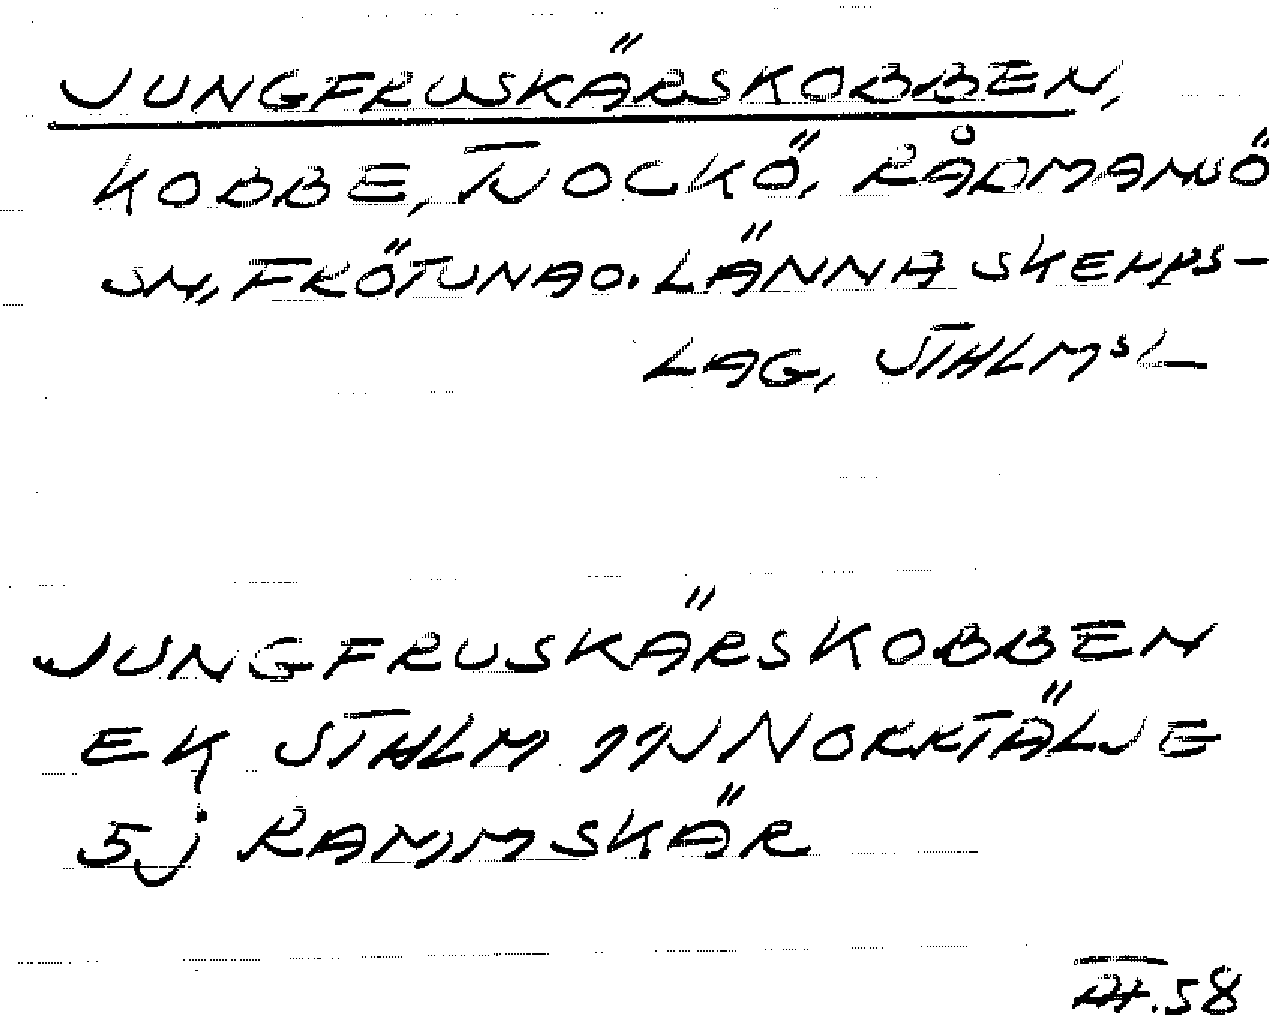 JUNGFRUSKÄRSKOBBEN,
KOBBE, TJOCKÖ, RÅDMANSÖ
SN, FRÖTUNA O. LÄNNA SKEPPS-
LAG, STHLMS L
JUNGFRUSKÄRSKOBBEN
EK STHLM 11NV NORRTÄLJE
5j RAMMSKÄR
58